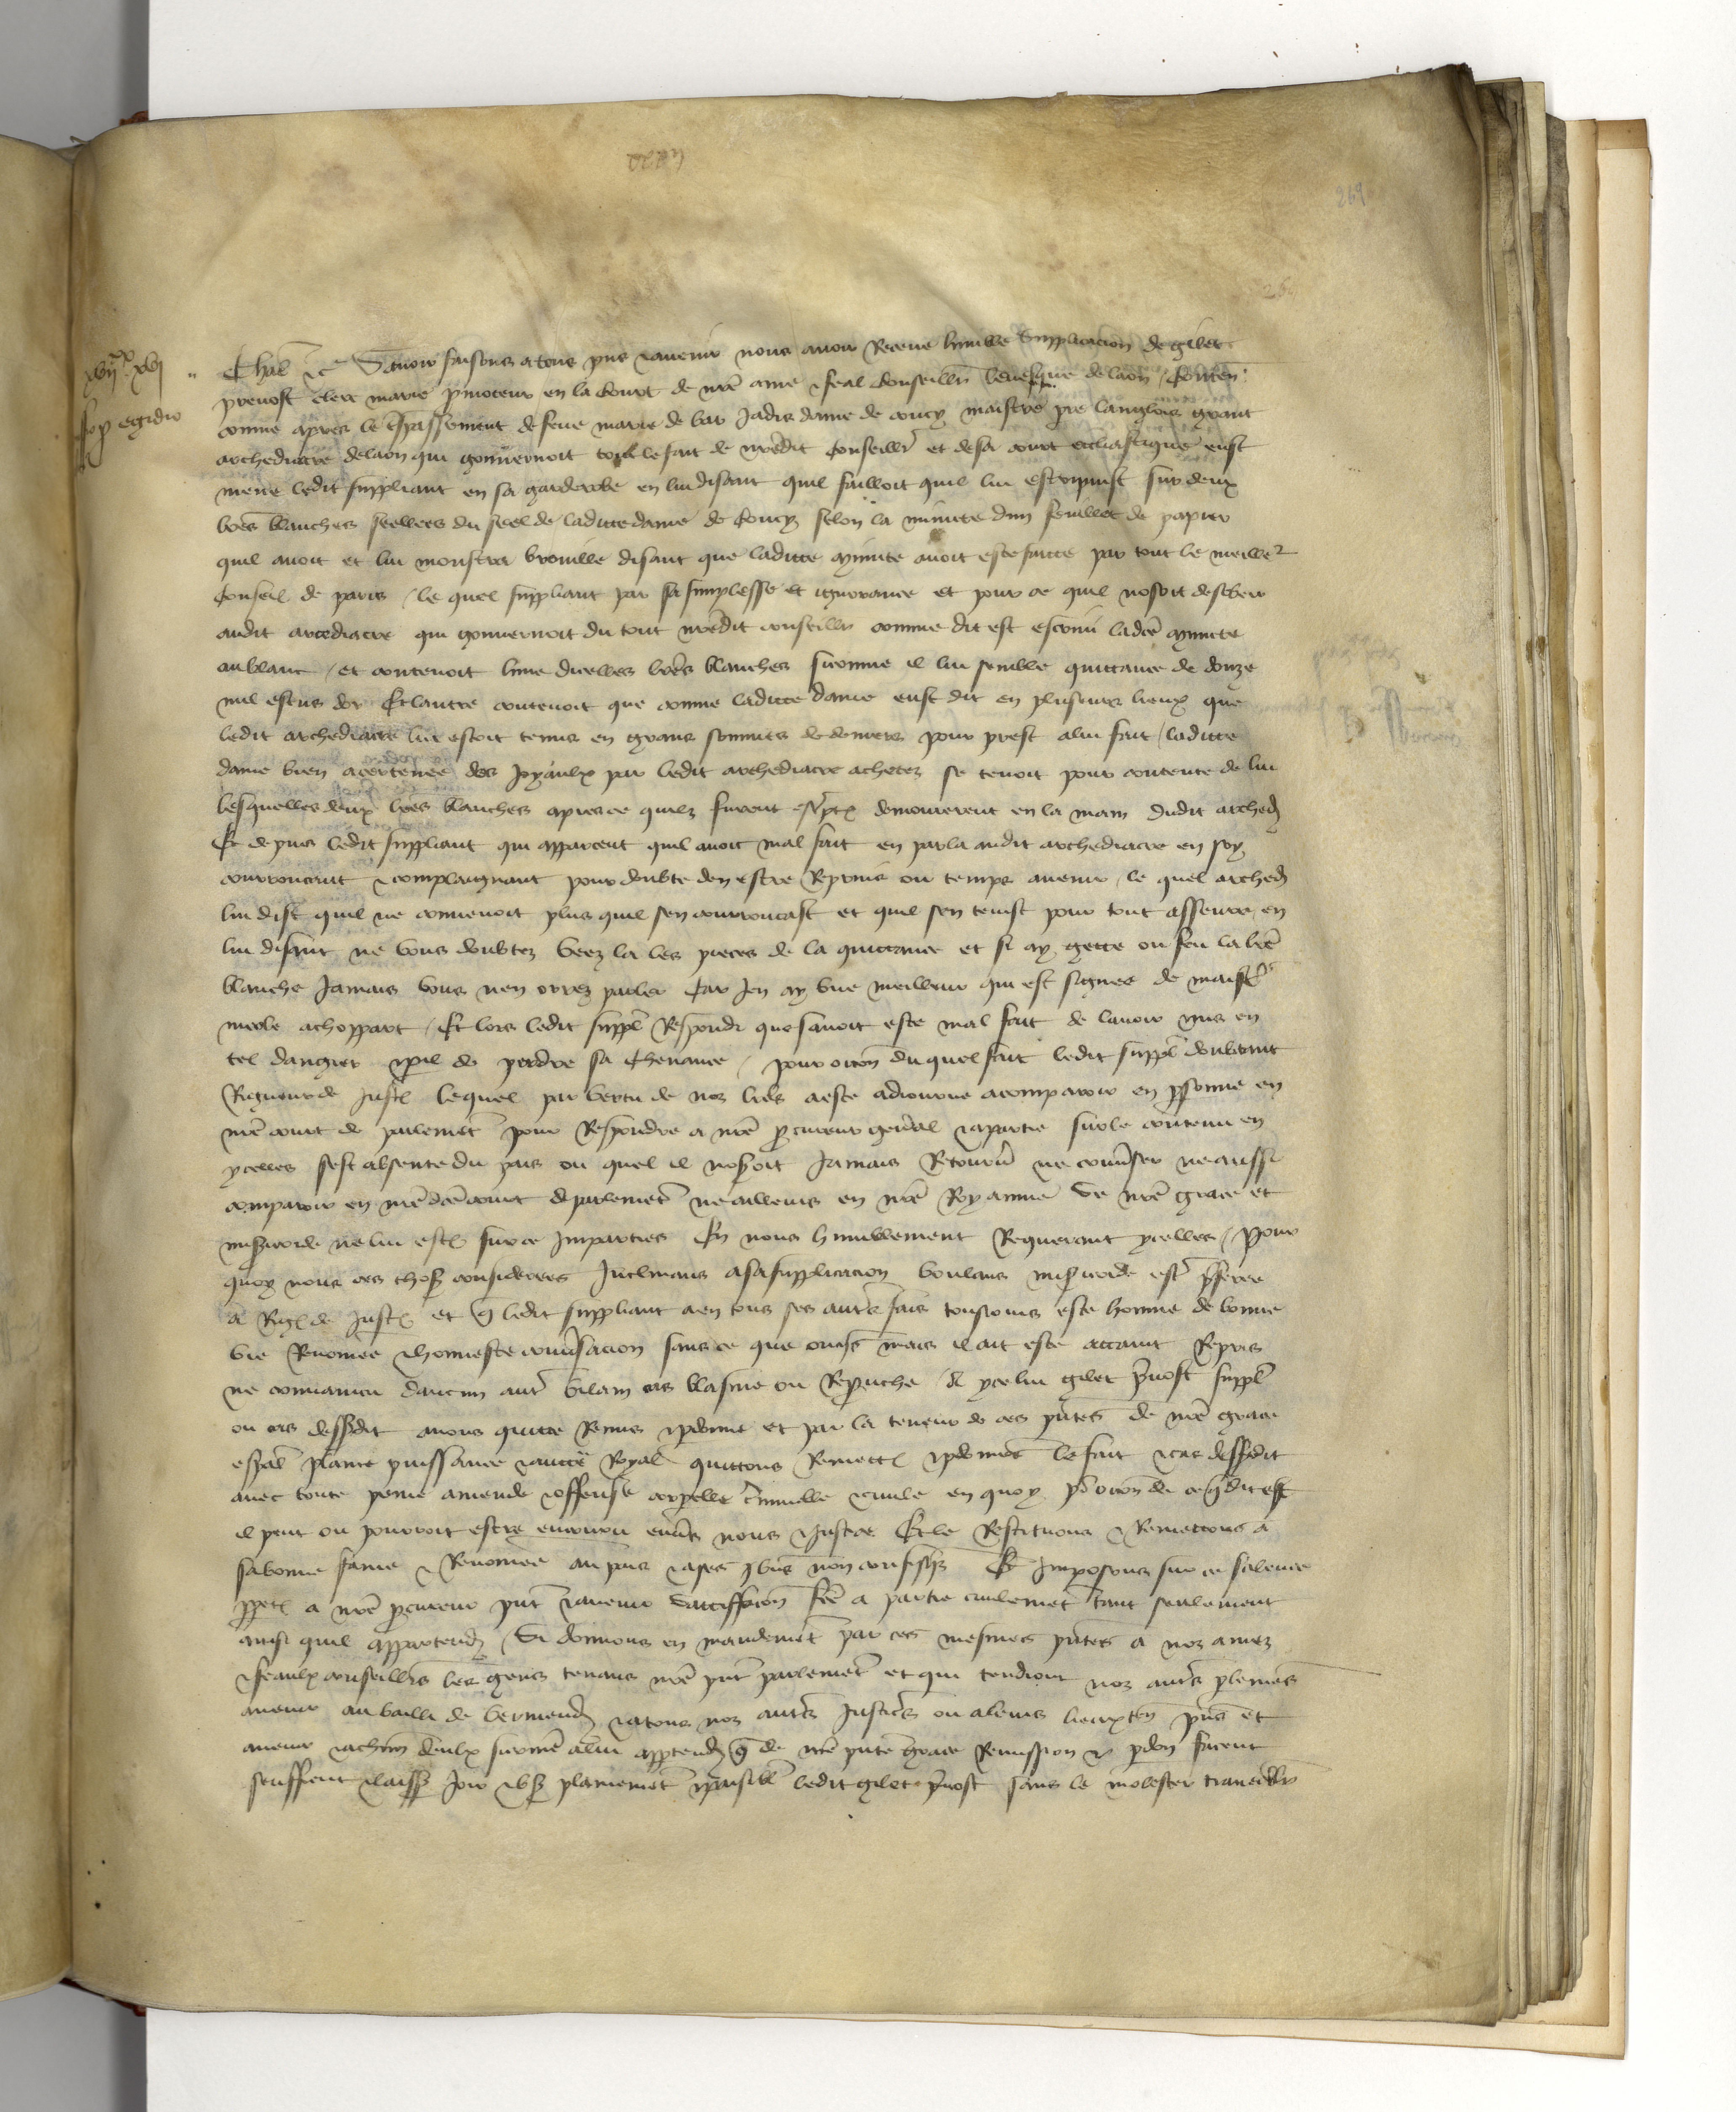 269
xvii xvi
pro egidio
Charles etc Savoir faisons a tous presens et avenir nous avoir Receue humble Supplicacion de gilet
prevost clerc marie promoteur en la Court de nre ame et feal Conseillr levesque de laon Conten
comme apres le trespassement de feue marie de bar Jadis dame de coucy maistre pre langlois grant
archediacre de laon qui gouvernoit tout le fait de nredit Conseillr et de sa court eccliastique eust
mene ledit suppliant en sa garderobe en lui disant quil failloit quil lui escripsist sur deux
lres blanches seellees du seel de laditte dame de Coucy selon la minute dun feuillet de papier
quil avoit et lui monstra brouille disant que laditte minute avoit este faitte par tout le meilleur
Conseil de paris / le quel suppliant par sa simplesse et ignorance et pour ce quil nosoit desobeir
audit arcediacre qui gouvernoit du tout nredit conseillr comme dit est escript ladce minute
au blanc / et contenoit lune dicelles lres blanches sicomme il lui semble quittance de douze
mil escus dor Et lautre contenoit que comme laditte dame eust dit en plusieurs lieux que
ledit archediacre lui estoit tenus en grans sommes de deniers pour prest a lui fait / laditte
dame bien acertenee des Joyaulx par ledit archediacre achetez se tenoit pour contente de lui
lesquelles deux lres blanches apres ce quelz furent escriptes demourerent en la main dudit arched
Et depuis ledit suppliant qui apparceut quil avoit mal fait en parla audit archediacre en soy
courroucant et complaignant pour doubte den estre Reprins ou temps avenir / le quel arched
lui dist quil ne convenoit plus quil sen courroucast et quil sen tenist pour tout asseure / en
lui disant ne vous doubtez veez la les pieces de la quittance et si ay gette ou feu la lre
blanche Jamais vous nen orrez parler Car Jen ay une meilleur qui est signee de maistre
nicole achoppart / Et lors ledit suppl Respondi que savoit este mal fait de lavoir mis en
tel dangier et peril de perdre sa chevance / pour occon du quel fait ledit suppl doubtant
Rigueur de Justice lequel par vertu de noz lres a este adiourne a comparoir en personne en
nre court de parlement pour Respondre a nre procureur general et a partie sur le contenu en
ycelles sest absente du pais ou quel il noseroit Jamais Retourner ne converser ne aussi
comparoir en nredce court de parlement ne ailleurs en nre Royaume Se nre grace et
misericorde ne lui estoit sur ce Imparties En nous humblement Requerant ycelles / Pour
quoy nous ces choses considerees Inclinans a sa supplicacion voulans misericorde estre preferee
a Rigueur de Justice et que ledit suppliant a en tous ses autres fais tousiours este homme de bonne
vie Renomee et honneste conversacion sans ce que oncques mais il ait este attaint Repris
ne convaincu daucun autre vilain cas blasme ou Reprouche / A ycelui gilet prevost suppl
ou cas dessusdit avons quitte Remis et pardonne et par la teneur de ces presentes de nre grace
especial plaine puissance et auctorite Royal quittons Remettons et pardonnons le fait et cas dessusdit
avec toute peine amende et offense corporelle criminelle et civile en quoy pour occon de ce que dit est
il peut ou pourroit estre encouru envers nous et Justice Et le Restituons et Remettons a
sa bonne fame et Renomee au pais et a ses biens non confisquez Et Imposons sur ce silence
perpetuel a nre procureur present et avenir Satisfacion faite a partie civilement tant seulement
ainsi quil appartendra / Si donnons en mandement par ces mesmes presentes a noz amez
et feaulx conseillers les gens tenans nre present parlement et qui tendront noz autres parlemens
avenir au bailli de vermendois et a tous noz autres Justiciers ou a leurs lieuxtenans presens et
avenir et a chascun deulx sicomme a lui appartendra que de nre presente grace Remission et pardon facent
seuffrent et laissent Joir et user plainement et paisiblement ledit gilet prevost sans le molester travailler